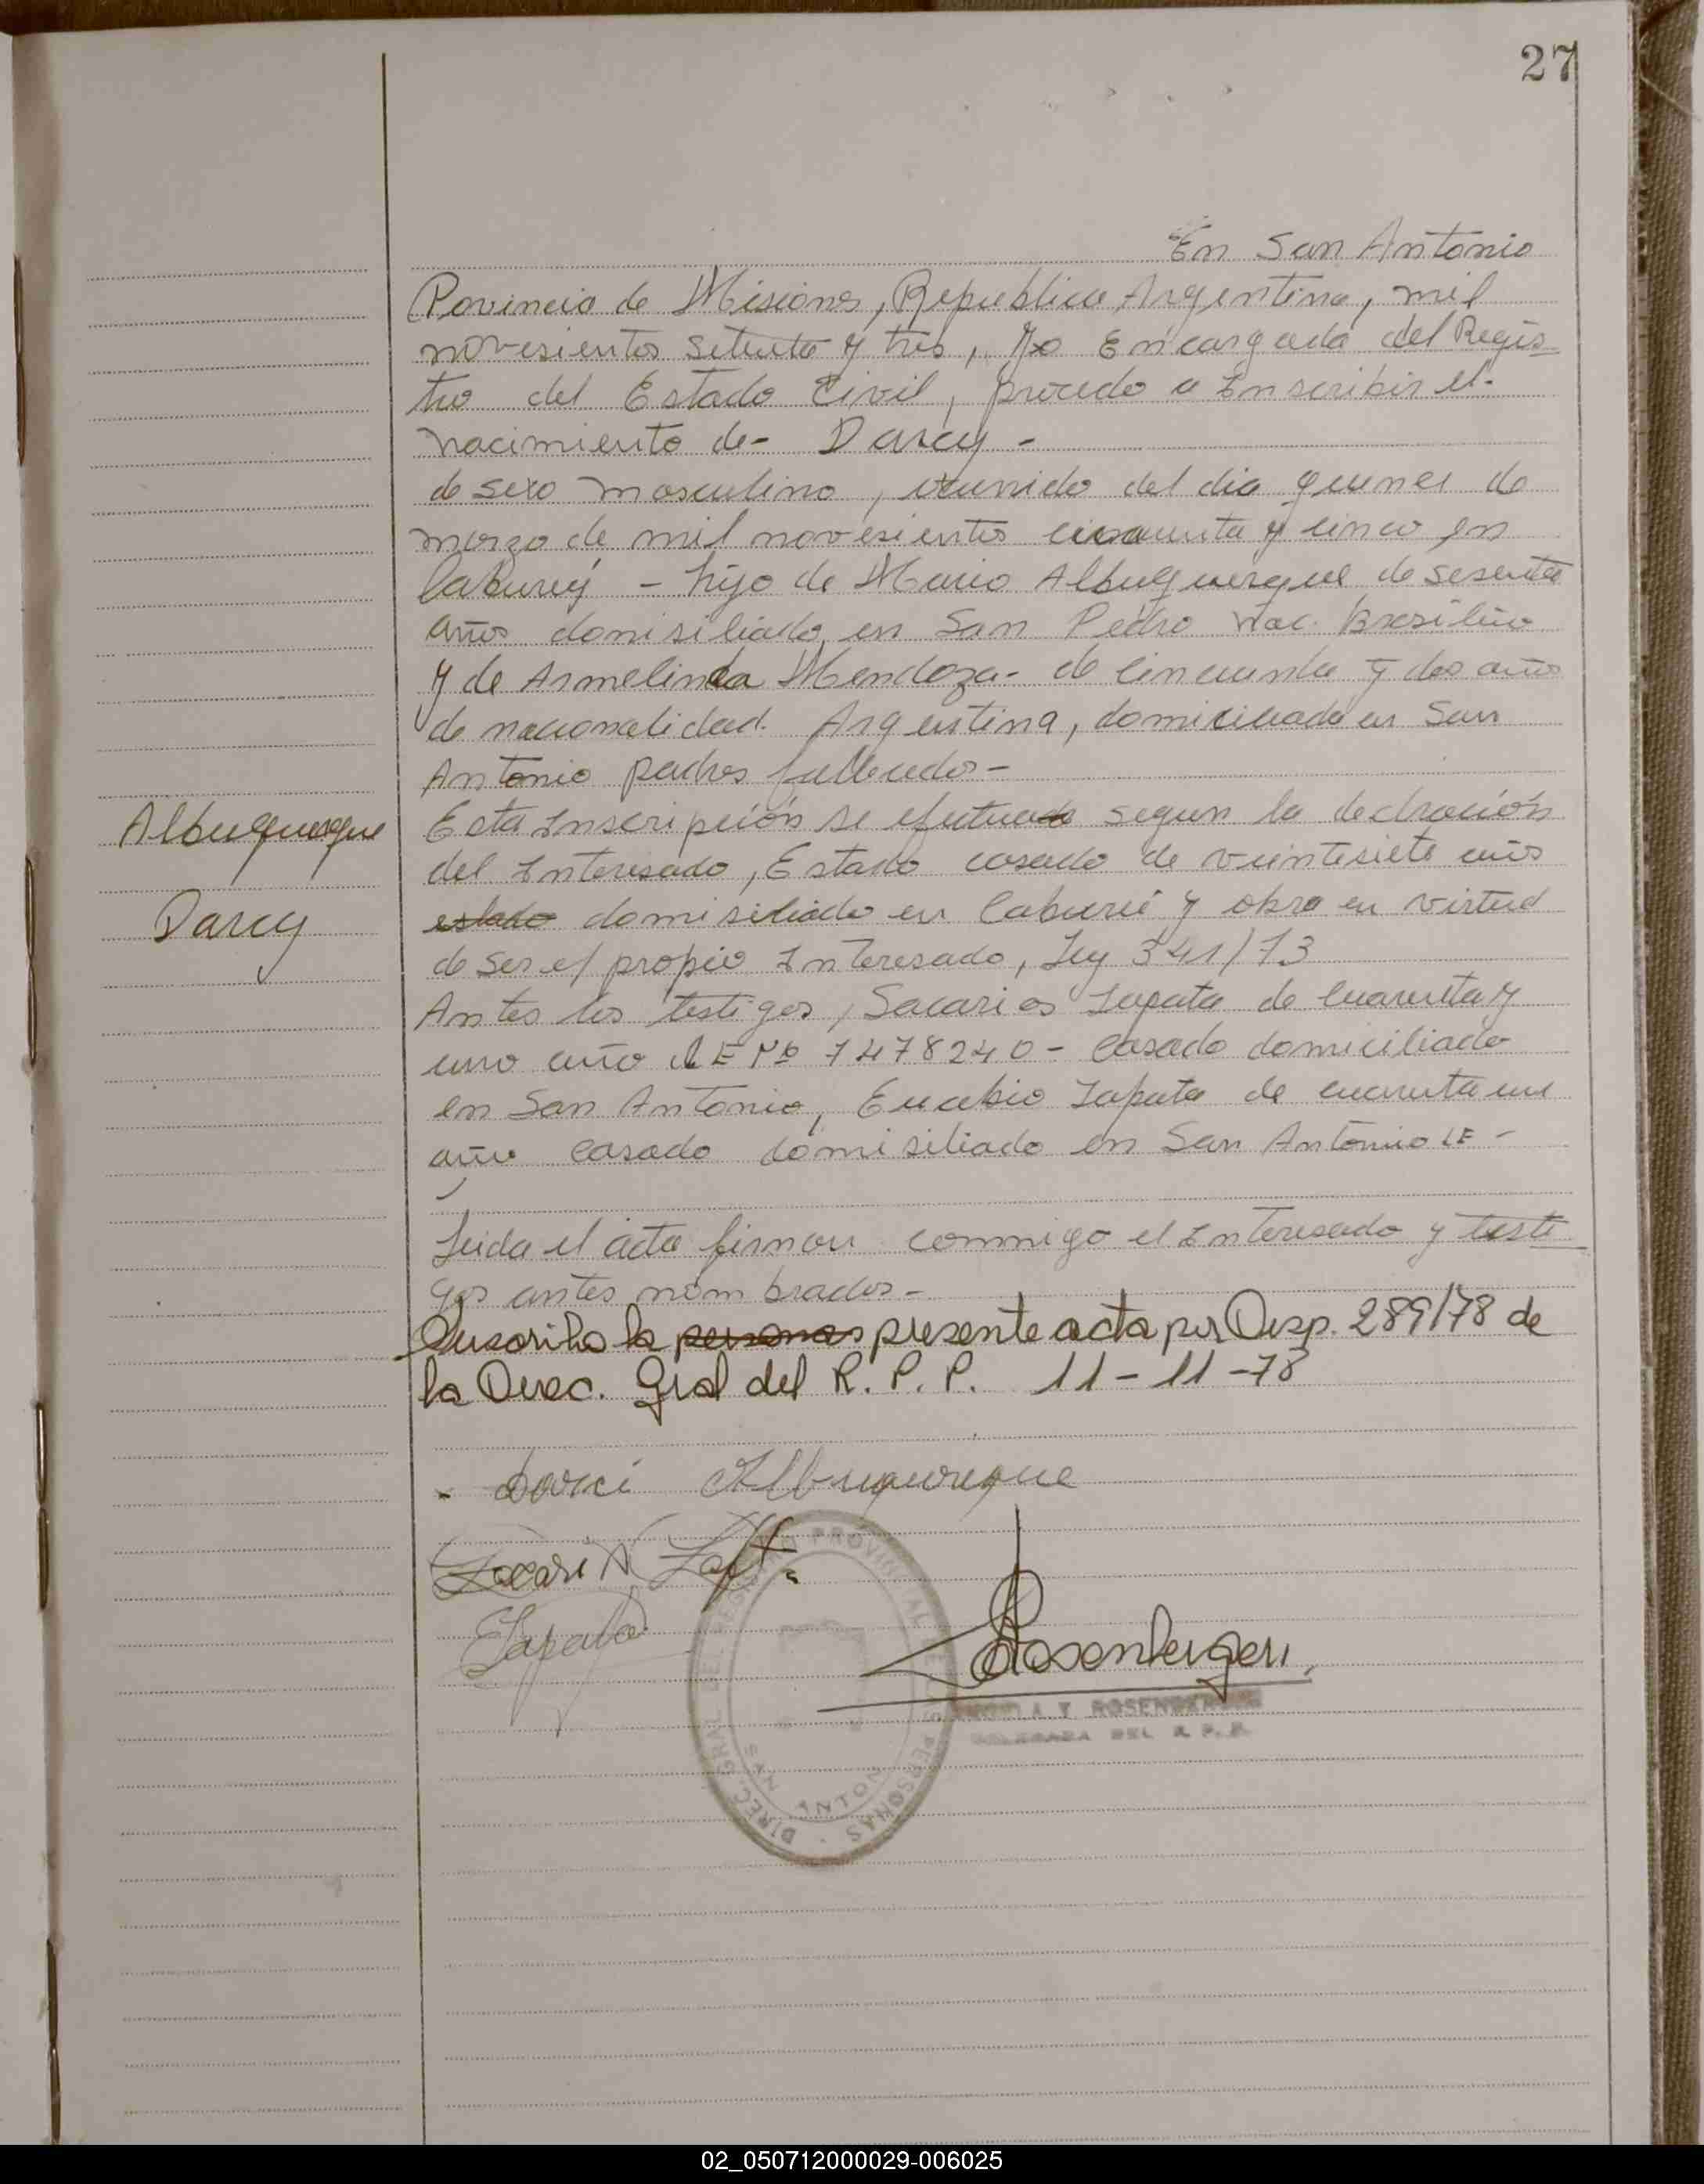 27
En San Antonio
Povincia de Misiones, Republica Argentina, mil
novesientos setenta y tres, Yo Encargada del Regis-
tro del Estado Civil, procedo a Inscribir el-
nacimiento de- Darcy -
de sexo masculino, del dia de
marzo de mil novesientos cincuenta y cinco en
Caburey - hijo de Mario Albuquerque de sesenta
años domisiliado en San Pedro Nac. Brasilino
y de Armelinda Mendoza- de cincuenta y dos años
de nacionalidad. Argentina, domiciliada en San
Antonio padres fallecidos-
Esta Inscripción se efectua segun la declración
del Interesado, Estado casado de veintisiete años
estado domisiliado en Caburei y obra en virtud
de ser el propio Interesado, Ley 341/73
Antes los testigos, Sacarias Zapata de cuarenta y
uno año LE Nº 7478240- casado domiciliado
en San Antonio, Eucebio Zapata de cuarenta un
año casado domisiliado en San Antonio LE -
Leida el acta firman conmigo el Interesado y testi
gos antes nombrados-
Albuquerque
Darcy
Suscribo la personas presente acta por Disp. 289/78 de
la Direc. Gral del R. P. P. 11-11-78
Darci Albuquerque
Zapata
Rosenberger
DIREC. GRAL DEL REGISTRO PROVINCIAL DE LAS PERSONAS
SAN ANTONIO
T ROSENBERGER
DELEGADA DEL R. P. P.
02_050712000029-006025